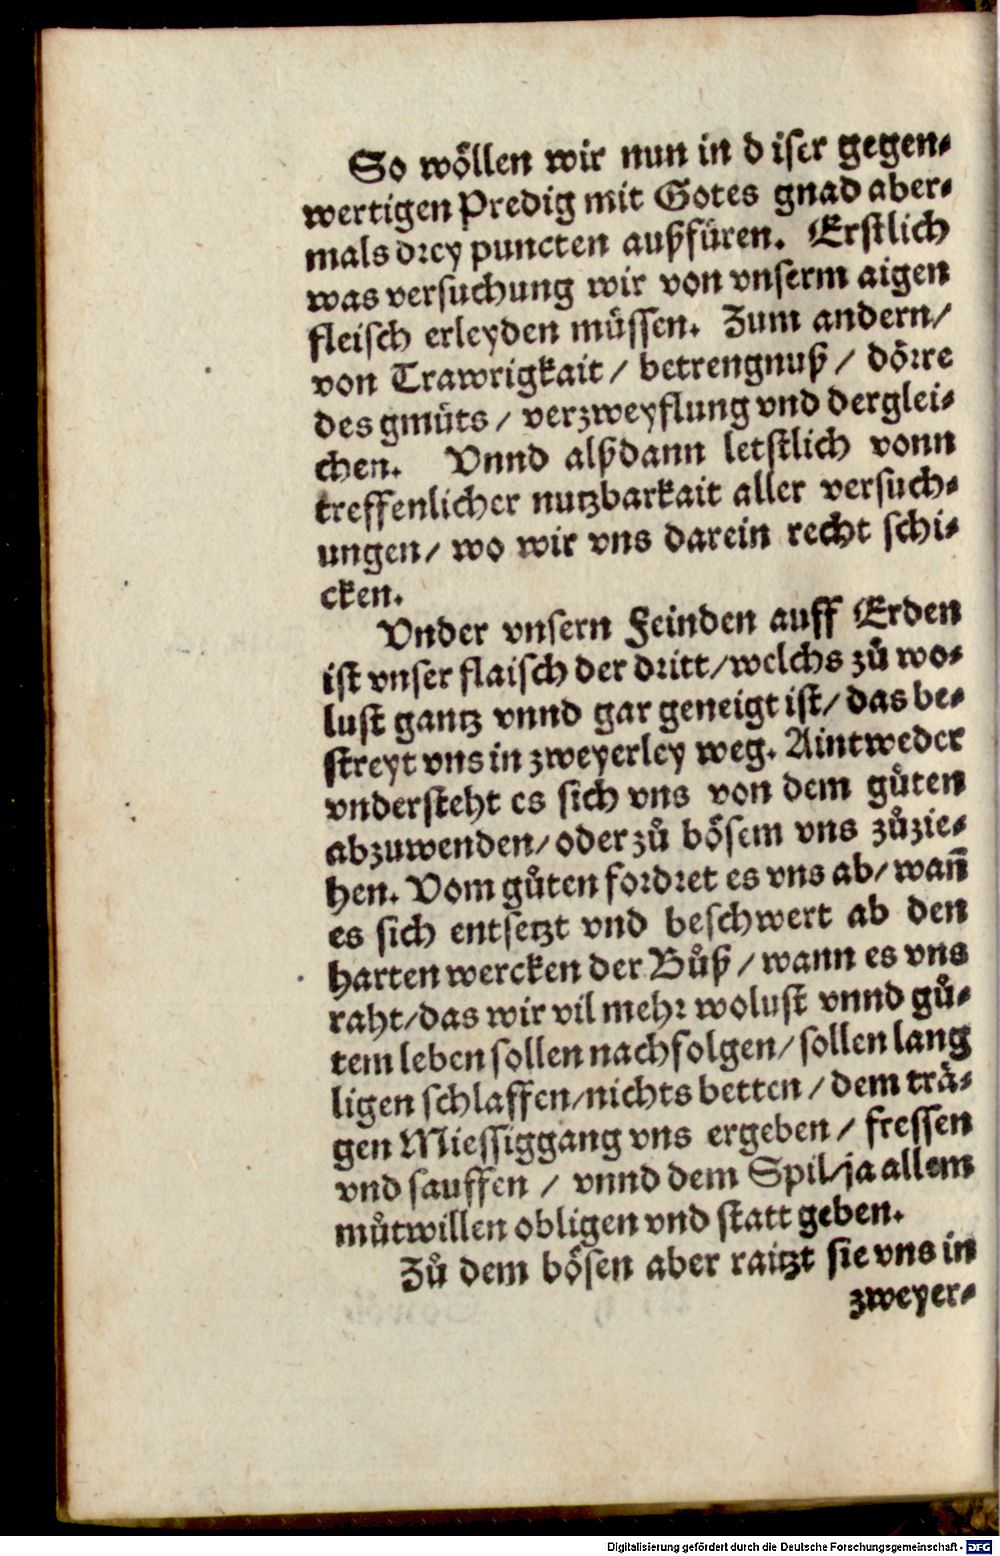 So wöllen wir nun in diser gegen⸗
wertigen Predig mit Gotes gnad aber⸗
mals drey puncten außfüren. Erstlich
was versuchung wir von vnserm aigen
fleisch erleyden müssen. Zum andern/
von Trawrigkait / betrengnuß / dörre
des gmüts / verzweyflung vnd derglei⸗
chen. Vnnd alßdann letstlich vonn
treffenlicher nutzbarkait aller versuch⸗
ungen/ wo wir vns darein recht schi⸗
cken.
Vnder vnsern Feinden auff Erden
ist vnser flaisch der dritt/welchs zů wo⸗
lust gantz vnnd gar geneigt ist/ das be⸗
streyt vns in zweyerley weg. Aintweder
vndersteht es sich vns von dem gůten
abzuwenden/ oder zů bösem vns zůzie⸗
hen. Vom gůten fordret es vns ab/ wañ
es sich entsetzt vnd beschwert ab den
harten wercken der Bůß / wann es vns
raht/das wir vil mehr wolust vnnd gů⸗
tem leben sollen nachfolgen/ sollen lang
ligen schlaffen/nichts betten / dem trä⸗
gen Miessiggang vns ergeben / fressen
vnd sauffen / vnnd dem Spil/ja allem
můtwillen obligen vnd statt geben.
Zů dem bösen aber raitzt sie vns in
zweyer⸗
Digitalisierung gefördert durch die Deutsche Forschungsgemeinschaft - DFG